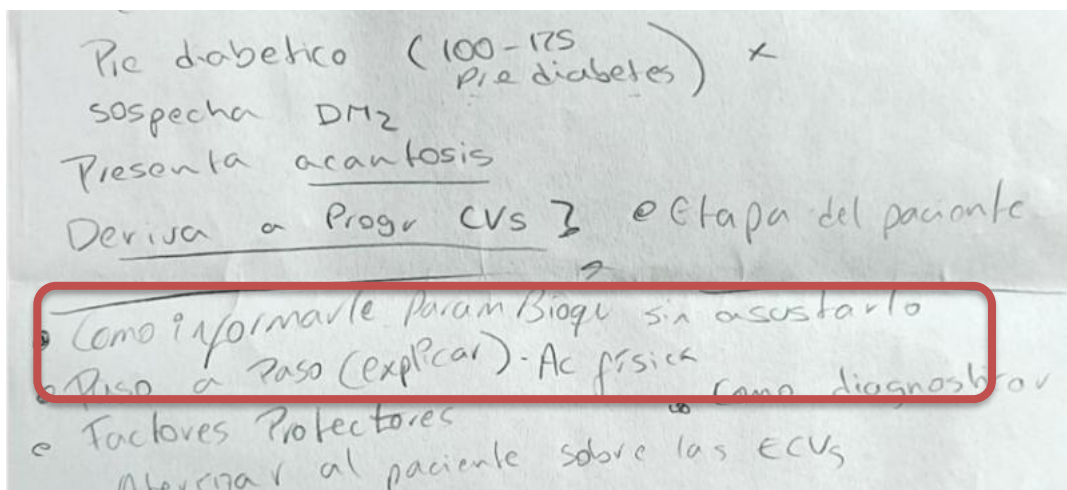 Pie diabetico (100-125
pre diabetes) x
sospecha DM2
Presenta acantosis
Deriva a Progr CVs } • Etapa del paciente
• Como informarle ParamBioqu sin asustarlo
• Paso a Paso (explicar) - Ac física
• Como diagnosticar
• Factores Protectores
al paciente sobre las ECVs